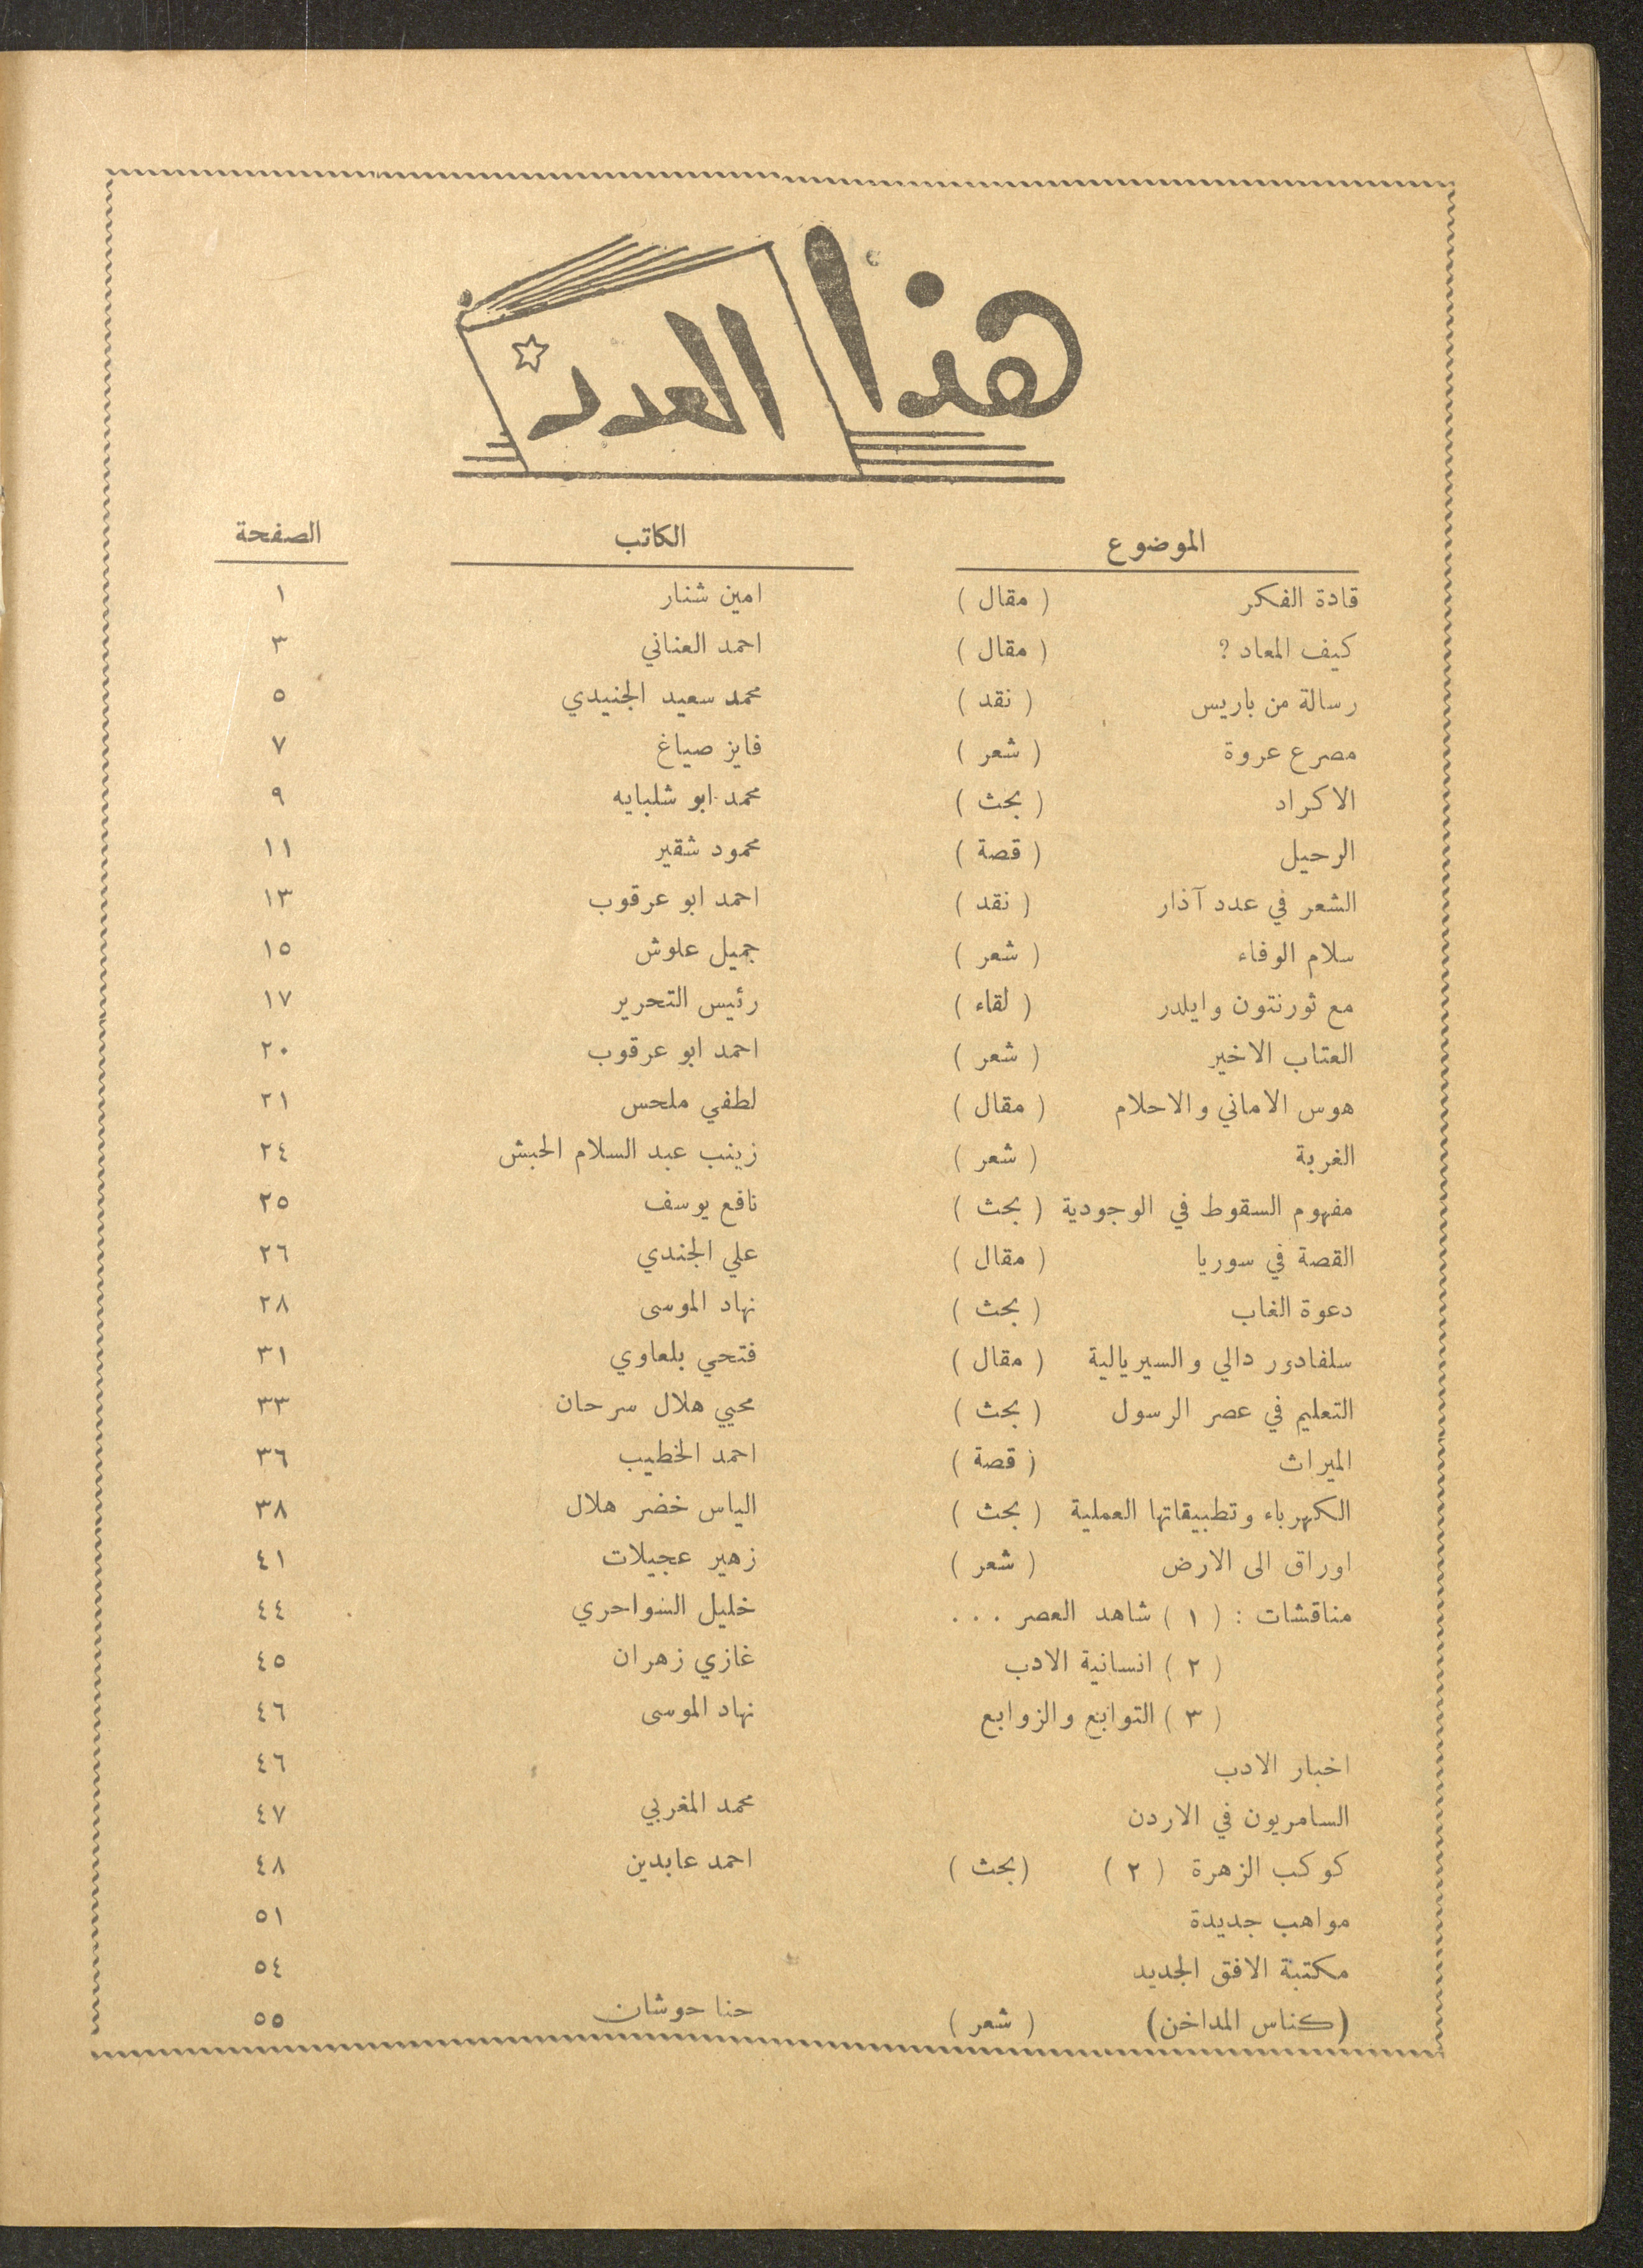 هذا العدد
الموضوع الكاتب الصفحة
قادة الفكر ( مقال ) امين شنار ١
كيف المعاد ? ( مقال ) احمد العناني ٣
رسالة من باريس ( نقد ) محمد سعيد الجنيدي ٥
مصرع عروة ( شعر ) فايز صياغ ٧
الاكراد ( بحث ) محمد ابو شلبايه ٩
الرحيل ( قصة ) محمود شقير ١١
الشعر في عدد آذار ( نقد ) احمد ابو عرقوب ١٣
سلام الوفاء ( شعر ) جميل علوش ١٥
مع ثورنتون وايلدر ( لقاء ) رئيس التحرير ١٧
العتاب الاخير ( شعر ) احمد ابو عرقوب ٢٠
هوس الاماني والاحلام ( مقال ) لطفي ملحس ٢١
الغربة ( شعر ) زينب عبد السلام الحبش ٢٤
مفهوم السقوط في الوجودية ( بحث ) نافع يوسف ٢٥
القصة في سوريا ( مقال ) علي الجندي ٢٦
دعوة الغاب ( بحث ) نهاد الموسى ٢٨
سلفادور دالي والسيريالية ( مقال ) فتحي بلعاوي ٣١
التعليم في عصر الرسول ( بحث ) محيي هلال سرحان ٣٣
الميراث ( قصة ) احمد الخطيب ٣٦
الكهرباء وتطبيقاتها العملية ( بحث ) الياس خضر هلال ٣٨
اوراق الى الارض ( شعر ) زهير عجيلات ٤١
مناقشات : ( ١ ) شاهد العصر ... خليل السواحري ٤٤
( ٢ ) انسانية الادب غازي زهران ٤٥
( ٣ ) التوابع والزوابع نهاد الموسى ٤٦
اخبار الادب ٤٦
السامريون في الاردن محمد المغربي ٤٧
كوكب الزهرة ( ٢ ) ( بحث ) احمد عابدين ٤٨
مواهب جديدة ٥١
مكتبة الافق الجديد ٥٤
(كناس المداخن) ( شعر ) حنا حوشان ٥٥